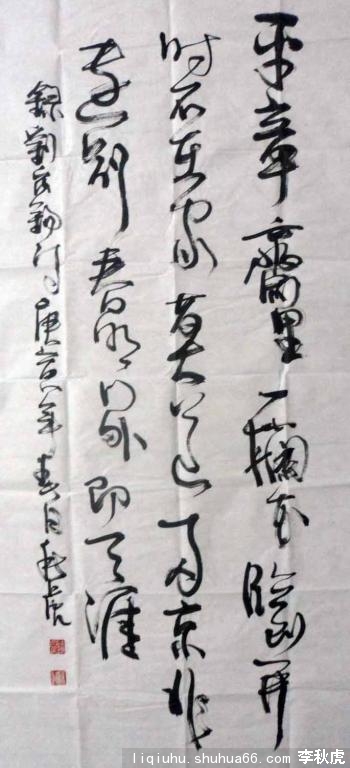 平章齋里一欄花臨到开
时不在家莫道两京非
远别春明门外即天涯
錄劉禹錫诗庚寅年春日秋虎
liqiuhu.shuhua66.com 李秋虎